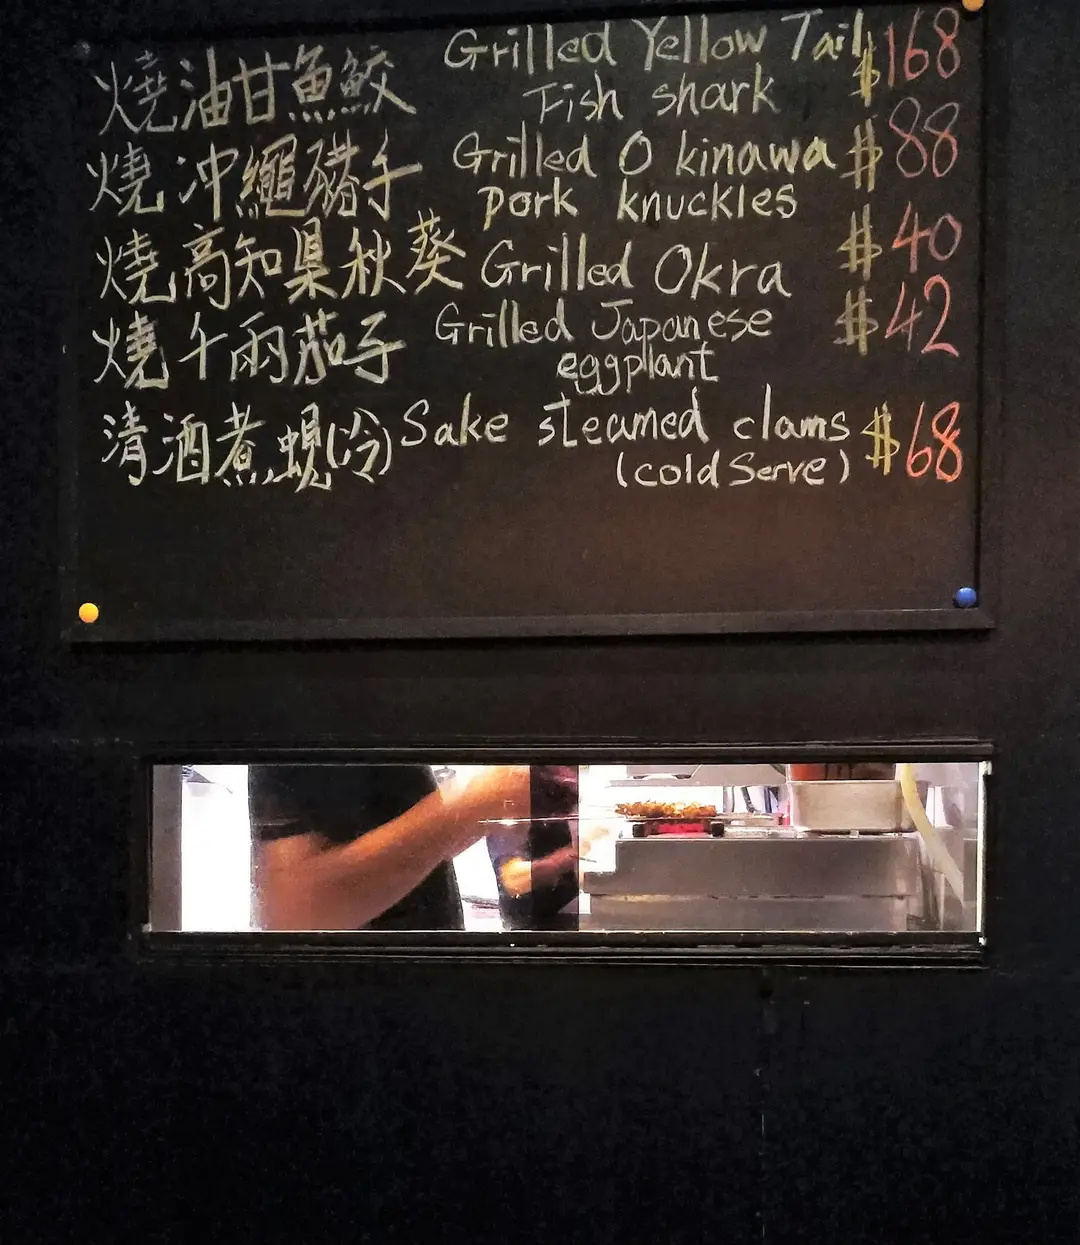 燒油甘魚鮫 Grilled Yellow Tail $168
Fish shark
燒沖繩豬手 Grilled Okinawa $88
pork knuckles
燒高知県秋葵 Grilled Okra $40
燒千両茄子 Grilled Japanese $42
eggplant
清酒煮蜆(冷) Sake steamed clams $68
(cold Serve)